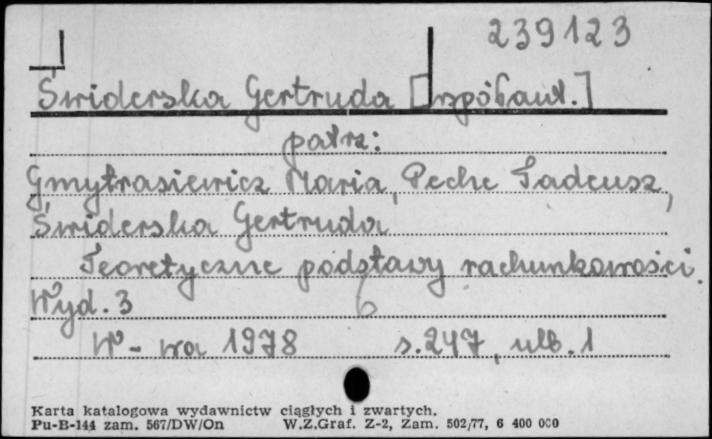 239123
Świderska Gertruda [współaut.]
patrz:
Gmytrasiewicz Maria, Peche Tadeusz,
Świderska Gertruda
Teoretyczne podstawy rachunkowości.
Wyd. 3
W-wa 1978 s.247, ulb.1
Karta katalogowa wydawnictw ciągłych i zwartych.
Pu-B-144 zam. 567/DW/On W.Z.Graf. Z-2, Zam. 502/77, 6 400 000